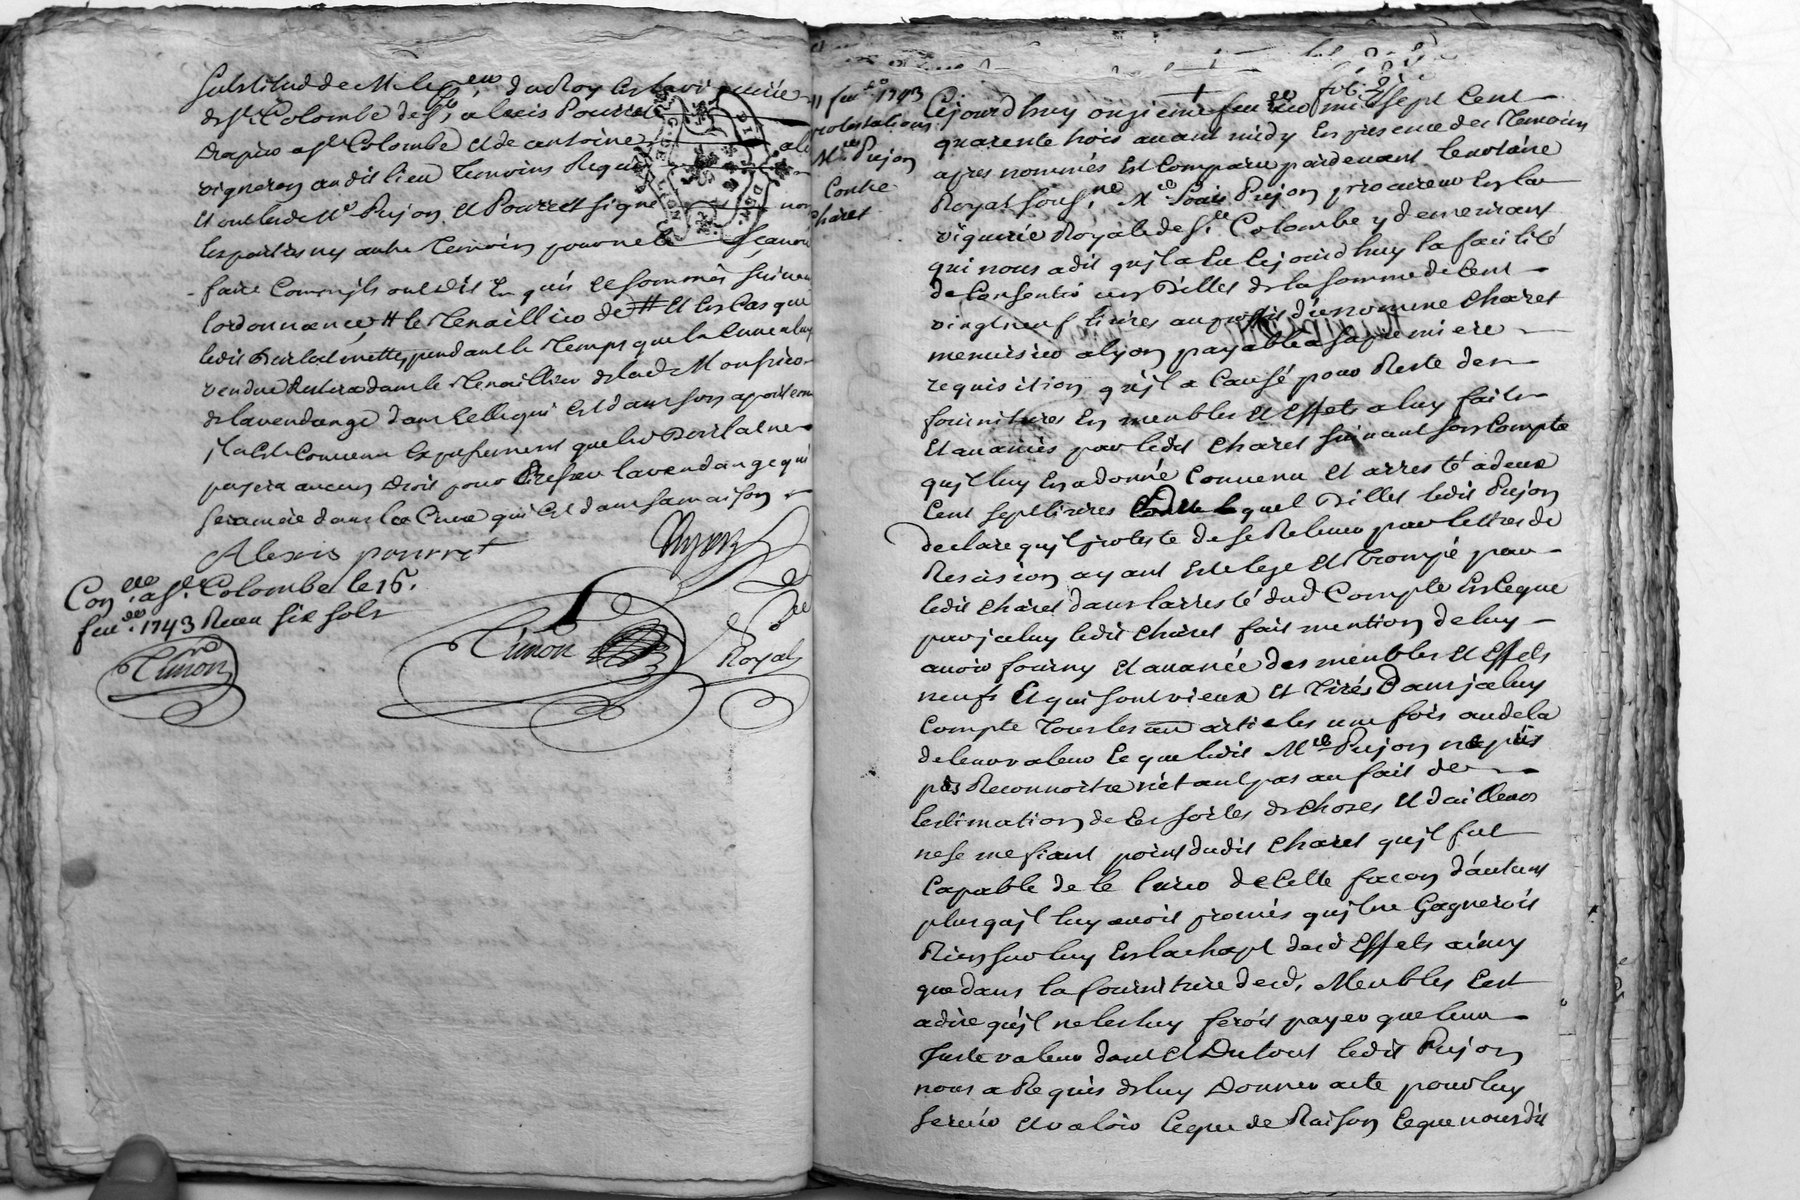 Substitud de M. le du Roy En la viguerie
de Ste Colombe de Sr, alexis Pourret
Drapier a Ste Colombe et de antoine
vigneron audit lieu Temoins Requis
Et ont ledt Me Pujon, et Pourret signé non
les parties ny autre Temoin pour ne le Sçavoir
faire Comm'ils ont dit En quis et sommés suivant
lordonnance, # le Tenaillier de # Et En Cas que
pendant le Temps que la
vendue Restera dans le Tenaillier de lad
de lavendange dans Celle qui Est dans son
il a Eté Convenu Expressement que led ne
payera aucun droit pour lavendange qui
sera mise dans la Cuve qui Est dans sa maison
Alexis pourret
Pujon
Con.lé a Ste. Colombe le 16.
feu.er 1743 Receu six sols
Timon
Timon
Nre
Royal
11 feur 1743
protestations
Me Pujon
Contre
Charet
Cejourdhuy onzieme feurier mil Sept Cent
quarente trois auant midy En presence des Temoins
apres nommés Est Comparu pardeuant le notaire
Royal sousne. Me Louis Pujon procureur En la
viguerie Royale de Ste Colombe y demeurant
qui nous a dit qu'jl a Eu Cejourdhuy la facilité
de Consentir un Billet de la somme de Cent
vingt neuf liures au proffit d'un nommé Charet
menuisier a lyon payable a sa premiere
requisition qu'jl a Causé pour Reste des
fournitures En meubles et Effets a luy faits
Et auancés par ledit Charet suiuant son Compte
qu'jl luy En a donné Conuenu Et arresté a deux
Cent sept liures Contre lequel Billet ledit Pujon
declare qu'jl proteste de se Releuer par lettres de
Rescision ayant Eté lezé Et Trompé par
ledit Charet dans l'arresté dud Compte En Ceque
par jceluy ledit Charet fait mention de luy
auoir fourny et auancé des meubles et Effets
neufs Et qui sont vieux Et Tirés dans jceluy
Compte Tous les articles une fois audela
de leur valeur Ce que ledit Me Pujon n'a pû
pas Reconnoitre n'etant pas au fait de
lestimation de Ces sortes de choses Et d'ailleurs
ne se mefiant point dudit Charet qu'jl fut
Capable de le de Cette facon d'autant
plus qu'jl luy auoit promis qu'jl ne Gagneroit
Rien sur luy En lachapt desd Effets ainsy
que dans la fourniture desd. Meubles Cest
a dire qu'jl ne les luy feroit payer que leur
Juste valeur dont Et Du tout ledit Pujon
nous a Requis de luy Donner acte pour luy
seruir et valoir Ceque de Raison Ceque nousdit